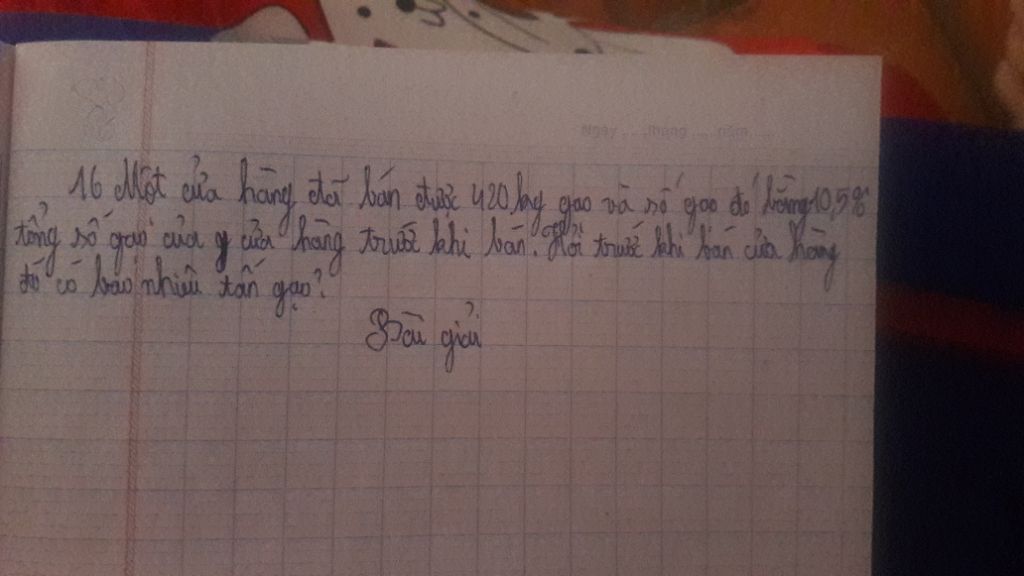 Ngày ... tháng ... năm ...
16 Một cửa hàng đã bán được 420 kg gạo và số gạo đó bằng 10,5%
tổng số gạo của cửa hàng trước khi bán. Hỏi trước khi bán cửa hàng
đó có bao nhiêu tấn gạo?
Bài giải